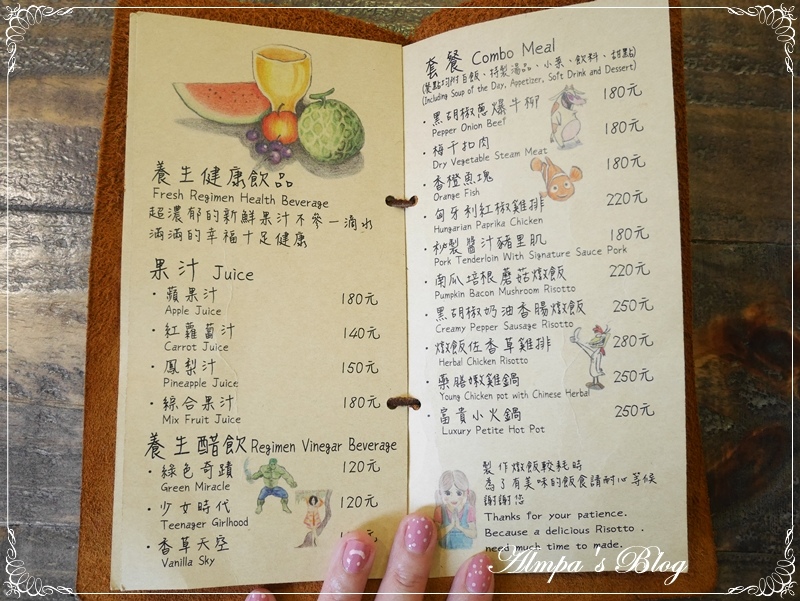 養生健康飲品
Fresh Regimen Health Beverage
超濃郁的新鮮果汁不參一滴水
滿滿的幸福十足健康
果汁 Juice
・蘋果汁 180元
Apple Juice
・紅蘿蔔汁 140元
Carrot Juice
・鳳梨汁 150元
Pineapple Juice
・綜合果汁 180元
Mix Fruit Juice
養生醋飲 Regimen Vinegar Beverage
・綠色奇蹟 120元
Green Miracle
・少女時代 120元
Teenager Girlhood
・香草天空
Vanilla Sky
套餐 Combo Meal
(餐點均附白飯、特製湯品、小菜、飲料、甜點)
(Including Soup of the Day, Appetizer, Soft Drink and Dessert)
・黑胡椒蔥爆牛柳 180元
Pepper Onion Beef
・梅干扣肉 180元
Dry Vegetable Steam Meat
・香橙魚塊 180元
Orange Fish
・匈牙利紅椒雞排 220元
Hungarian Paprika Chicken
・祕製醬汁豬里肌 180元
Pork Tenderloin With Signature Sauce Pork
・南瓜培根蘑菇燉飯 220元
Pumpkin Bacon Mushroom Risotto
・黑胡椒奶油香腸燉飯 250元
Creamy Pepper Sausage Risotto
・燉飯佐香草雞排 280元
Herbal Chicken Risotto
・藥膳嫩雞鍋 250元
Young Chicken pot with Chinese Herbal
・富貴小火鍋 250元
Luxury Petite Hot Pot
製作燉飯較耗時
為了有美味的飯食請耐心等候
謝謝您
Thanks for your patience.
Because a delicious Risotto .
need much time to made.
Almpa's Blog